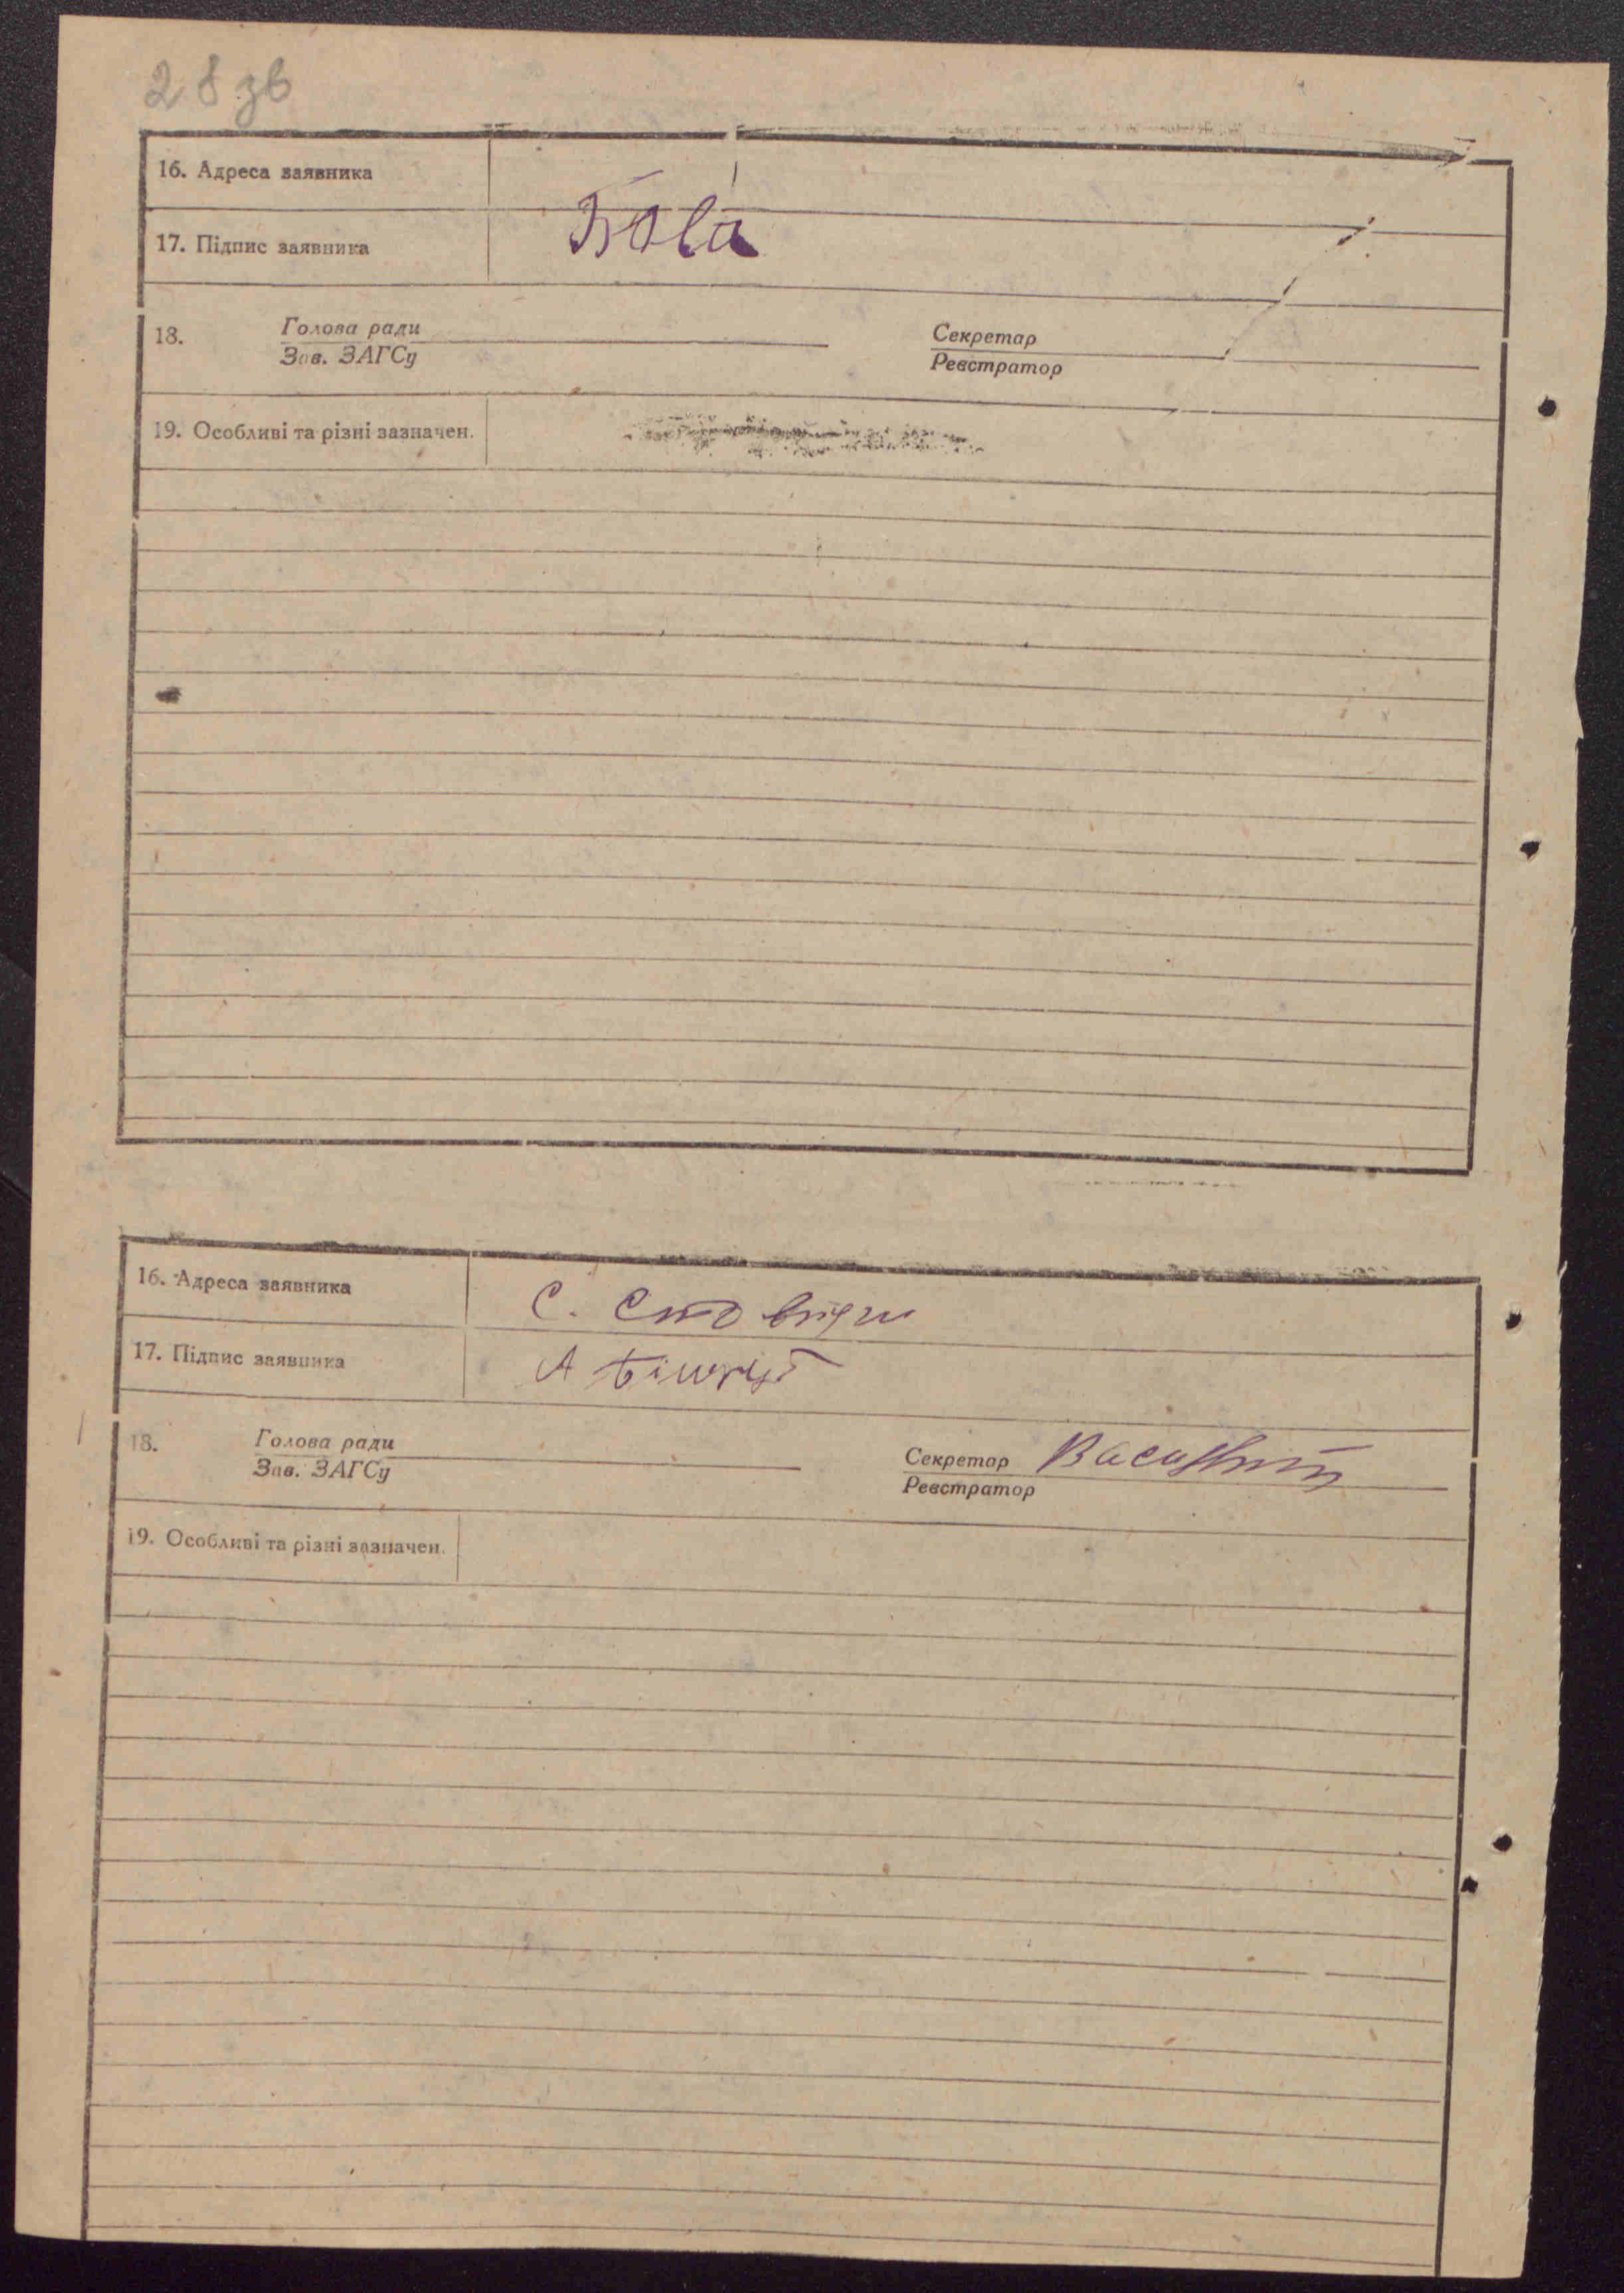 28 зв
16. Адреса заявника
17. Підпис заявника Бова
18. Голова ради Секретар
Зав. ЗАГСу Реєстратор
19. Особливі та різні зазначен.
16. Адреса заявника С.
17. Підпис заявника А
18. Голова ради Секретар
Зав. ЗАГСу Реєстратор
19. Особливі та різні зазначен.